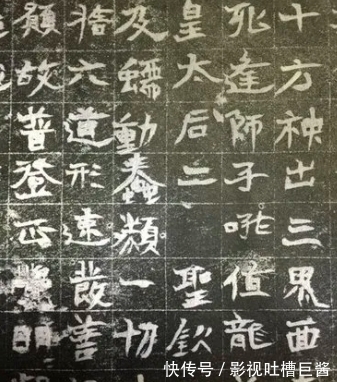 十方神出三界面
死逢師子吼值龍
皇太后二聖欽
及蠕動蠢類一切
捨六道形速發善
願故普登正覺
快传号 / 影视吐槽巨酱